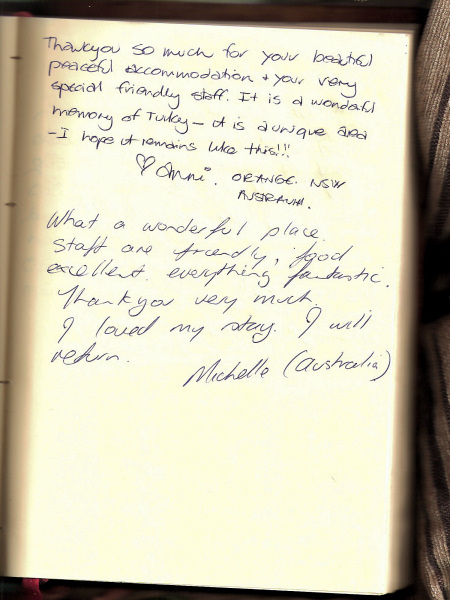 Thankyou so much for your beautiful
peaceful accommodation + your very
special friendly staff. It is a wonderful
memory of Turkey – it is a unique area
- I hope it remains like this!!!
♡ Anni. ORANGE. NSW
AUSTRALIA.
What a wonderful place.
Staff are friendly, food
excellent. everything fantastic.
Thankyou very much.
I loved my stay. I will
return.
Michelle (Australia)